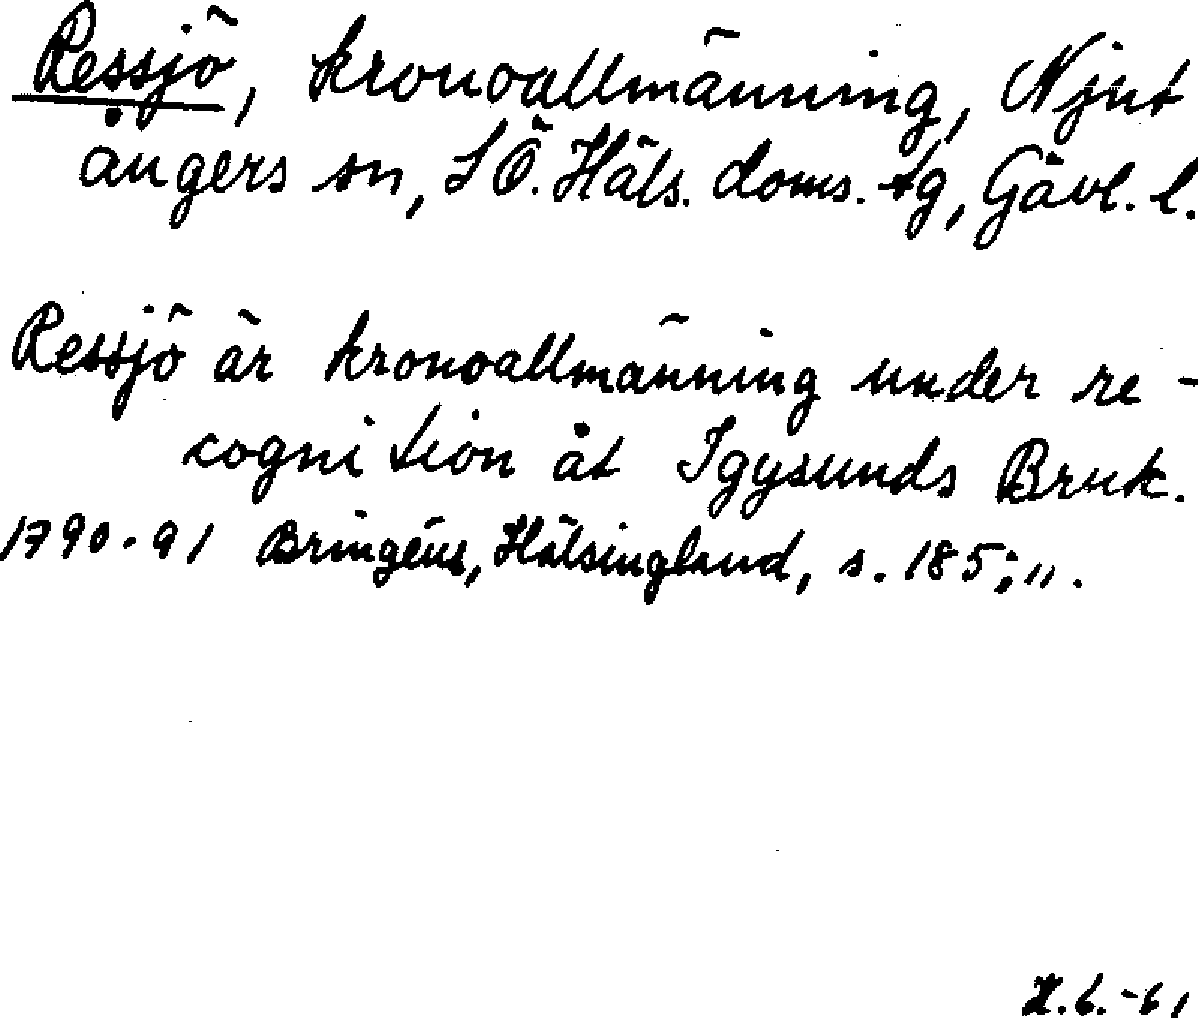 Ressjö, kronoallmänning, Njut
ångers sn, S Ö. Häls. doms. tg, Gävl. l.
Ressjö är kronoallmänning under re-
cognition åt Iggsunds Bruk.
1790-91 Bringéus, Hälsingland, s. 185; ".